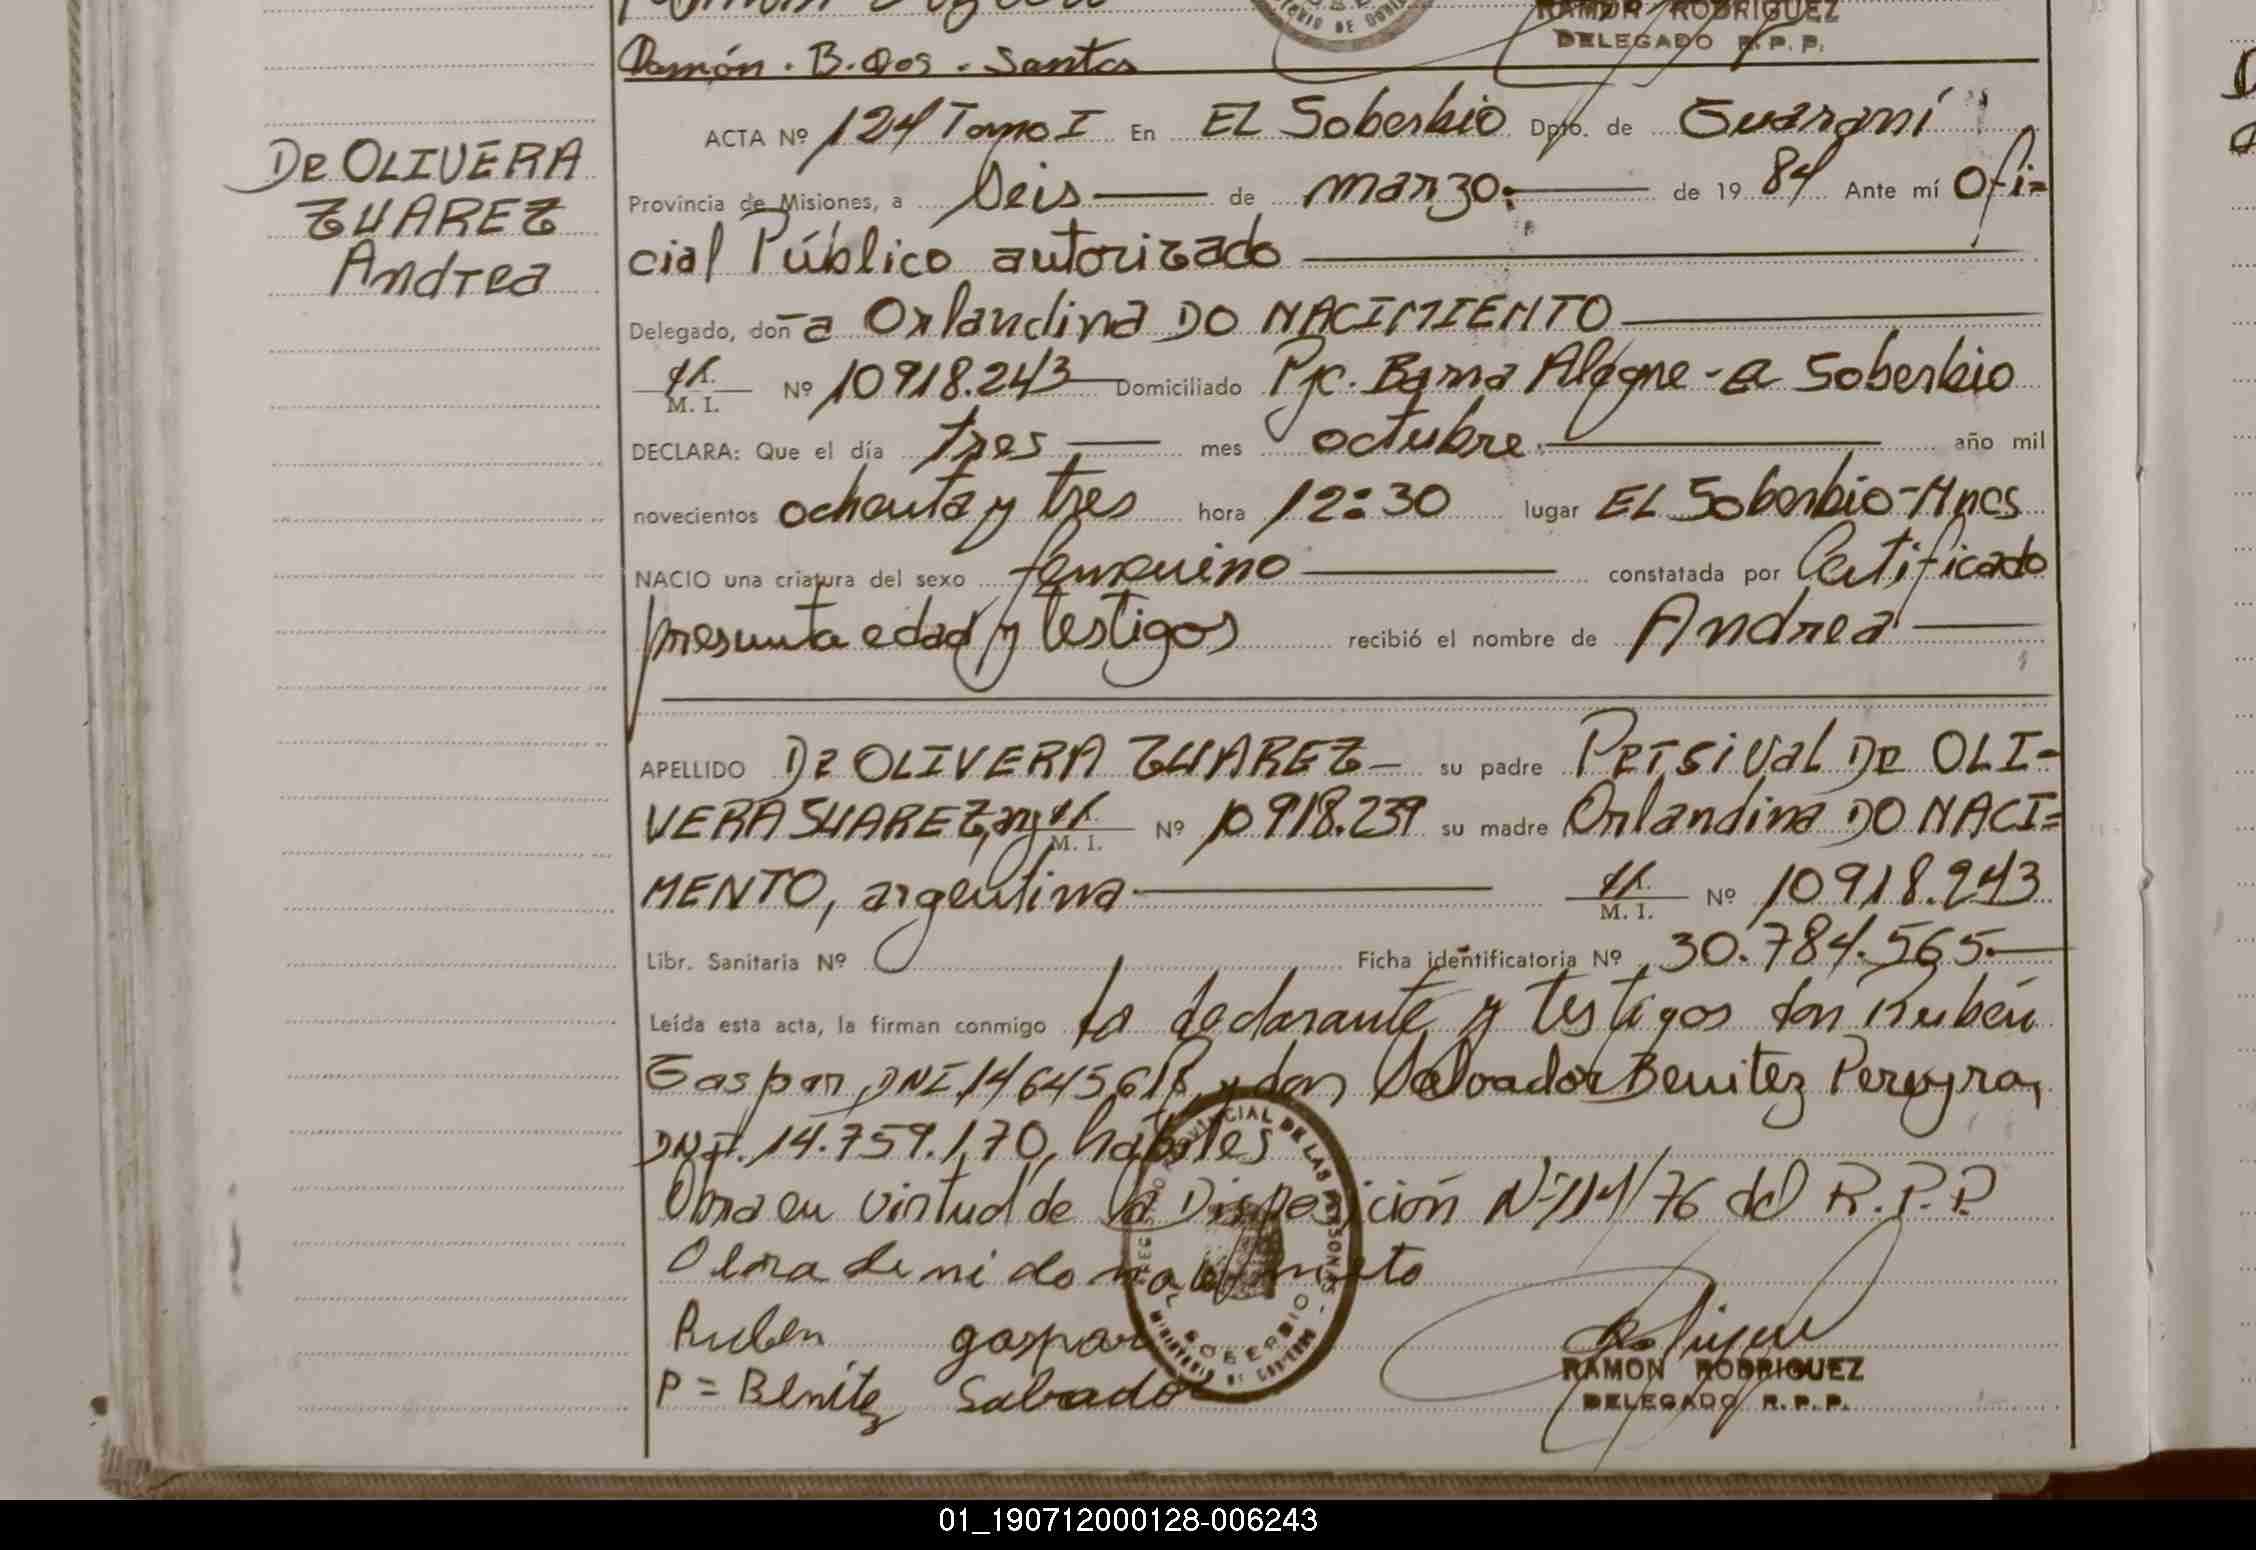 Ramón . B. Dos . Santos
RAMON RODRIGUEZ
DELEGADO R. P. P.
De OLIVERA
ZUAREZ
Andrea
ACTA Nº 124 Tomo I En EL Soberbio Dpto. de Guaraní
Provincia de Misiones, a Seis de marzo de 19 84 Ante mí Ofi=
cial Público autorizado
Delegado, doña Orlandina DO NACIMIENTO
M. I. Nº 10918.243 Domiciliado Pje. Barra Alegre - El Soberbio
DECLARA: Que el día tres mes octubre año mil
novecientos ochenta y tres hora 12:30 lugar EL Soberbio-Mnes
NACIO una criatura del sexo femenino constatada por Certificado
presunta edad y testigos recibió el nombre de Andrea
APELLIDO De OLIVERA ZUAREZ su padre PETSIVAL De OLI-
VERA SUAREZ, arg M. I. Nº 10918.239 su madre Orlandina DO NACI=
MENTO, argentina M. I. Nº 10918.243
Libr. Sanitaria Nº Ficha identificatoria Nº 30.784.565.
Leída esta acta, la firman conmigo la declarante y testigos don Rubén
Gaspar, DNI 14645618 y don Salvador Benitez Pereyra,
DNI. 14.759.170, hábiles
Obra en virtud de la Disposición Nº 114/76 del R.P.P.
Ruben gaspar
P = Benitez Salvador
REGISTRO PROVINCIAL DE LAS PERSONAS -
SOBERBIO
MINISTERIO DE GOBIERNO
RAMON RODRIGUEZ
DELEGADO R. P. P.
01_190712000128-006243